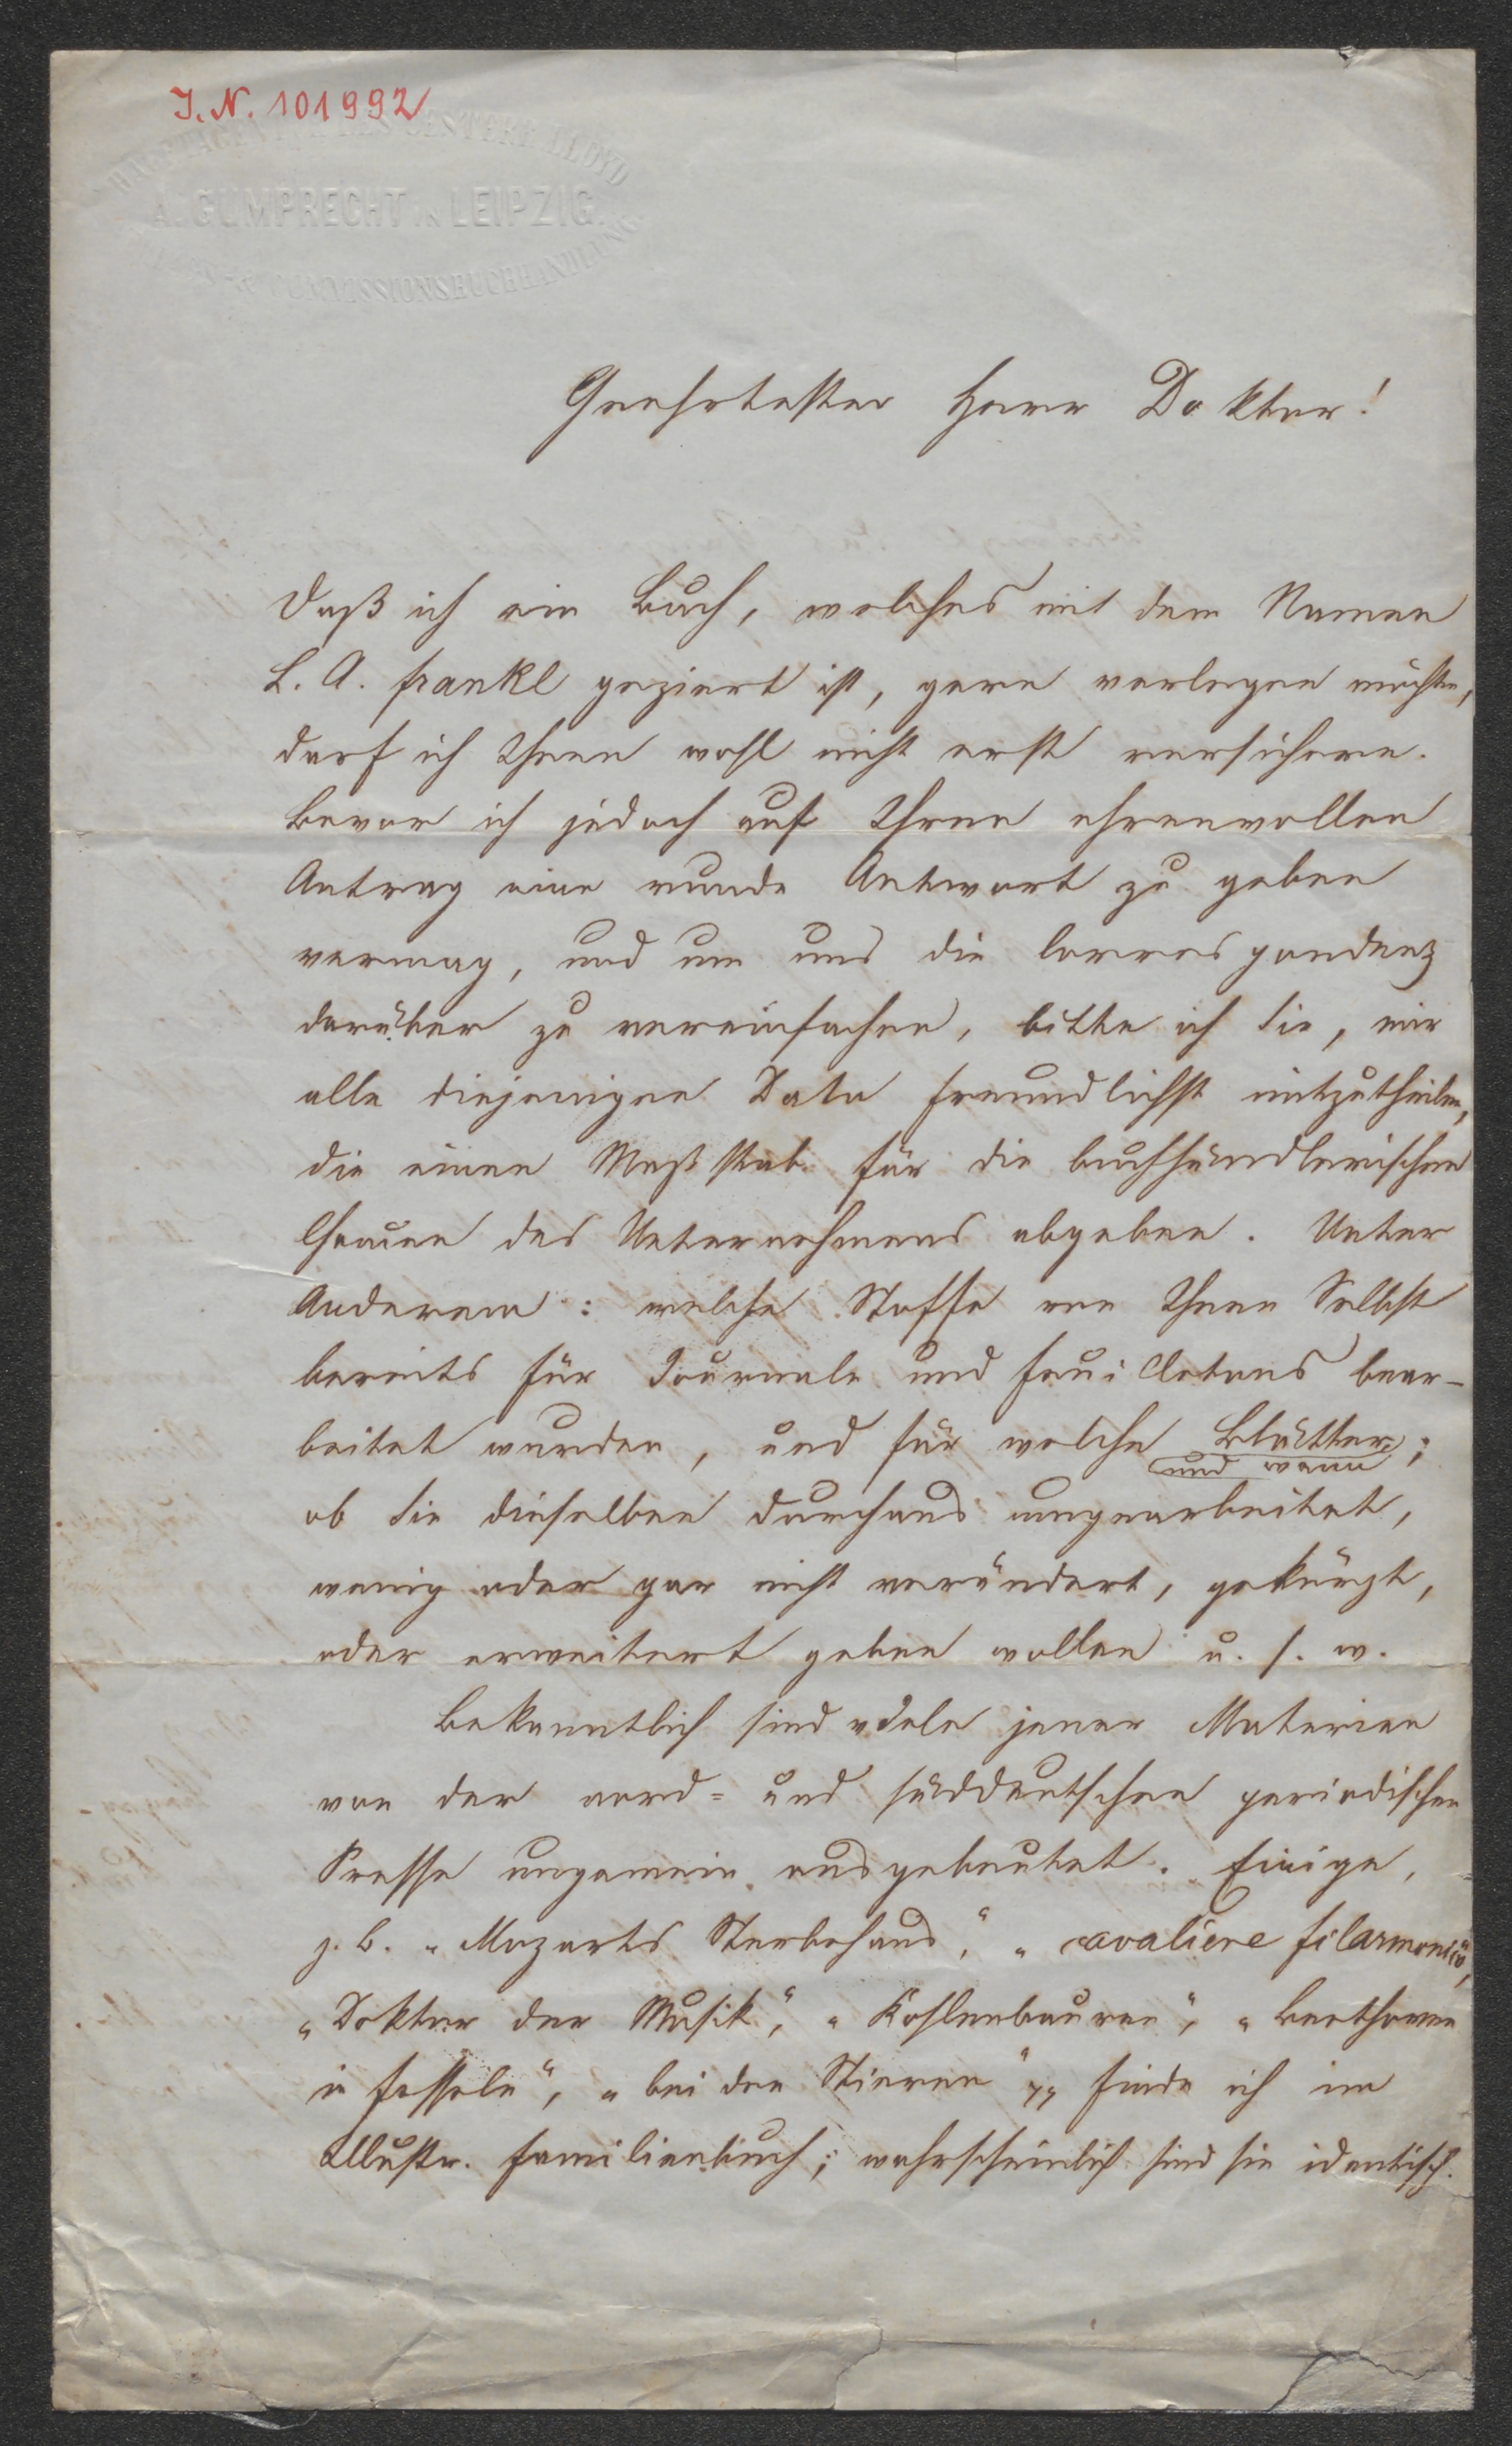 J. N. 101992
OESTERR. LLOYD
A. GUMPRECHT IN LEIPZIG.
COMMISSIONSBUCHHANDLUNG
Geehrtester Herr Doktor!
Daß ich ein Buch, welches mit dem Namen
L. A. Frankl geziert ist, gern verlegen möchte,
darf ich Ihnen wohl nicht erst versichern.
Bevor ich jedoch auf Ihren ehrenvollen
Antrag eine runde Antwort zu geben
vermag, und um uns die Correspondenz
darüber zu vereinfachen, bitte ich Sie, mir
alle diejenigen Data freundlichst mitzutheilen,
die einen Maßstab für die buchhändlerischen
Chancen des Unternehmens abgeben. Unter
Anderem: welche Stoffe von Ihnen Selbst
bereits für Journale und Feuilletons bear-
beitet wurden, und für welche Blätter;
und wann
ob Sie dieselben durchaus umgearbeitet,
wenig oder gar nicht verändert, gekürzt,
oder erweitert geben wollen u. s. w.
Bekanntlich sind viele jener Materien
von der nord- und süddeutschen periodischen
Presse ungemein ausgebeutet. Einige,
z. B. „Mozarts Sterbehaus", „cavaliere filarmonico",
„Doktor der Musik", „Kohlenbauren", „Beethoven
in Fesseln", „bei den Stieren" finde ich im
Illustr. Familienbuch; wahrscheinlich sind sie identisch.